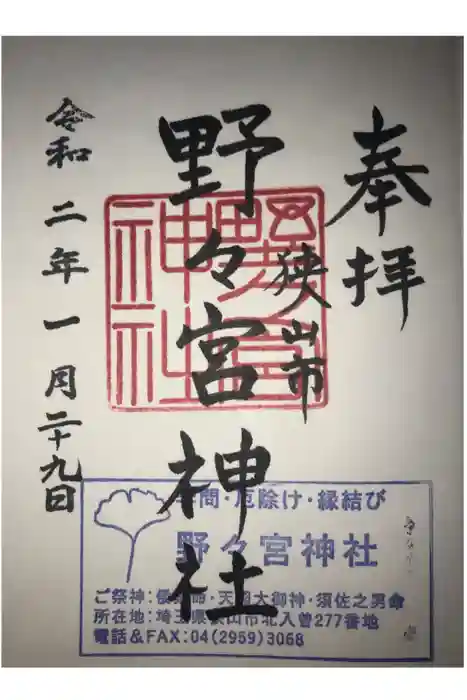 奉拝
狭山市
野々宮神社
令和二年一月二十九日
野々宮神社
問・厄除け・縁結び
野々宮神社
ご祭神:倭姫命・天照大御神・須佐之男命
所在地:埼玉県狭山市北入曽277番地
電話&FAX:04(2959)3068